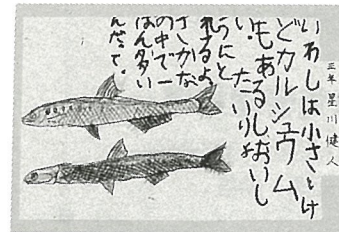 五年 星川健人
いわしは小さいけ
どカルシュウム
もあるしおいし
い。たいりょ
うにと
れるよ
さかな
の中で一
ばん多い
んだって。